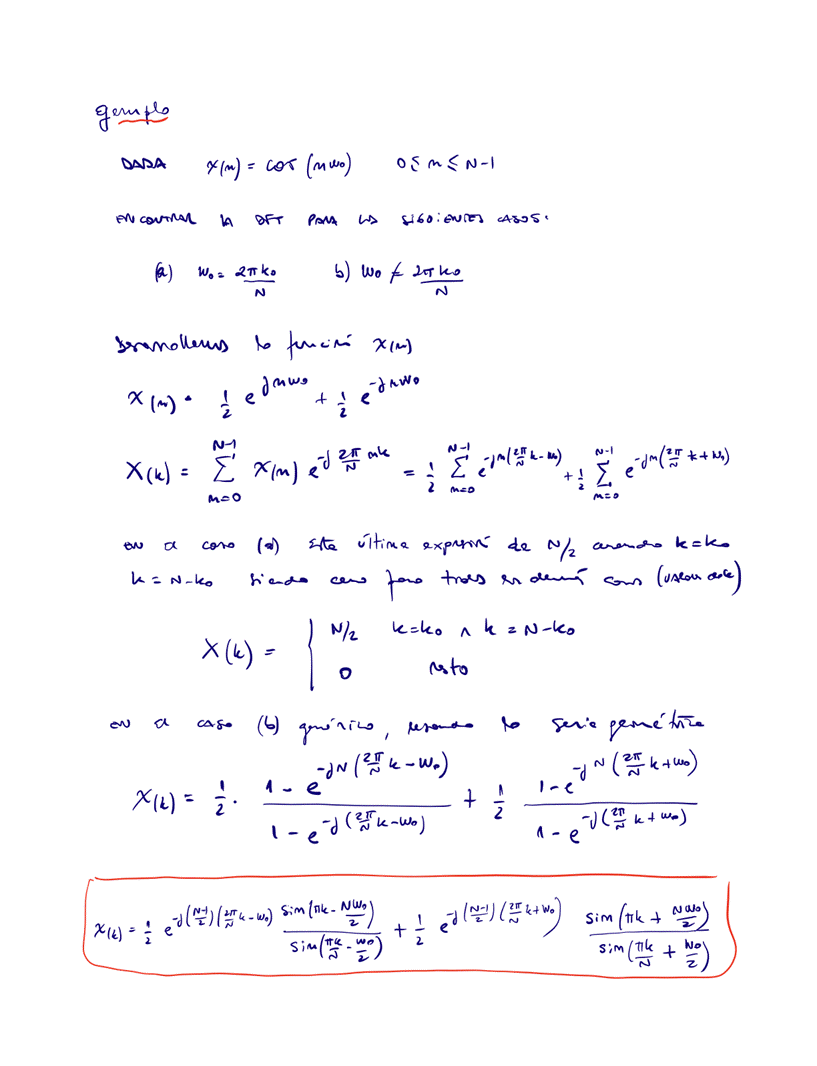 Ejemplo
DADA x(n) = cos (nω₀) 0 ≤ n ≤ N-1
ENCONTRAR LA DFT PARA LOS SIGUIENTES CASOS:
(a) ω₀ = 2πk₀/N b) ω₀ ≠ 2πk₀/N
Desarrollemos la función x(n)
x(n) = 1/2 e^{jnω₀} + 1/2 e^{-jnω₀}
X(k) = Σ_{n=0}^{N-1} x(n) e^{-j 2π/N nk} = 1/2 Σ_{n=0}^{N-1} e^{-jn(2π/N k - ω₀)} + 1/2 Σ_{n=0}^{N-1} e^{-jn(2π/N k + ω₀)}
en el caso (a) esta última expresión da N/2 cuando k=k₀
k = N-k₀ siendo cero para todos los demás casos
X(k) = { N/2 k=k₀ ∧ k = N-k₀
0 resto
en el caso (b) genérico, usando la serie geométrica
X(k) = 1/2 · (1 - e^{-jN(2π/N k - ω₀)})/(1 - e^{-j(2π/N k - ω₀)}) + 1/2 (1 - e^{-jN(2π/N k + ω₀)})/(1 - e^{-j(2π/N k + ω₀)})
X(k) = 1/2 e^{-j((N-1)/2)(2π/N k - ω₀)} sin(πk - Nω₀/2)/sin(πk/N - ω₀/2) + 1/2 e^{-j((N-1)/2)(2π/N k + ω₀)} sin(πk + Nω₀/2)/sin(πk/N + ω₀/2)